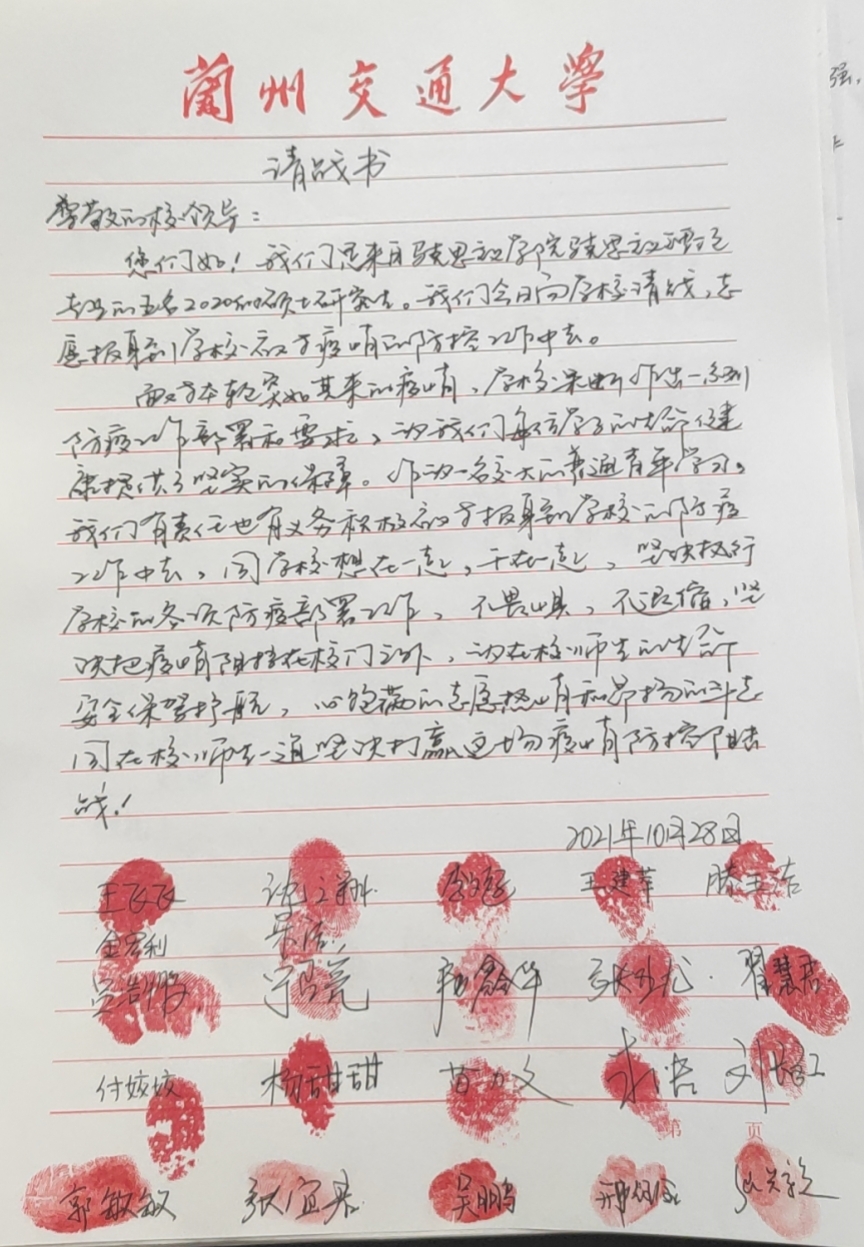 蘭州交通大学
强,
请战书
尊敬的校领导:
您们好!我们是来自马克思主义学院马克思主义理论
专业的五名2020级硕士研究生。我们今日向学校请战,志
愿投身到学校应对疫情的防控工作中去。
面对本轮突如其来的疫情,学校果断作出一系列
防疫工作部署和要求,为我们每位学子的生命健
康提供了坚实的保障。作为一名交大的普通青年学习。
我们有责任也有义务积极应对投身到学校的防疫
工作中去,同学校想在一起,干在一起,坚决执行
学校的各项防疫部署工作,不畏惧,不退缩,坚
决把疫情阻挡在校门之外,为在校师生的生命
安全保驾护航,以饱满的志愿热情和昂扬的斗志
同在校师生一道坚决打赢这场疫情防控阻击
战!
2021年10月28日
王飞飞 王建苹 滕玉洁
金宏利
翟慧君
付姣姣 杨甜甜 苗力文
第 页
郭敏敏 张宜君 吴鹏